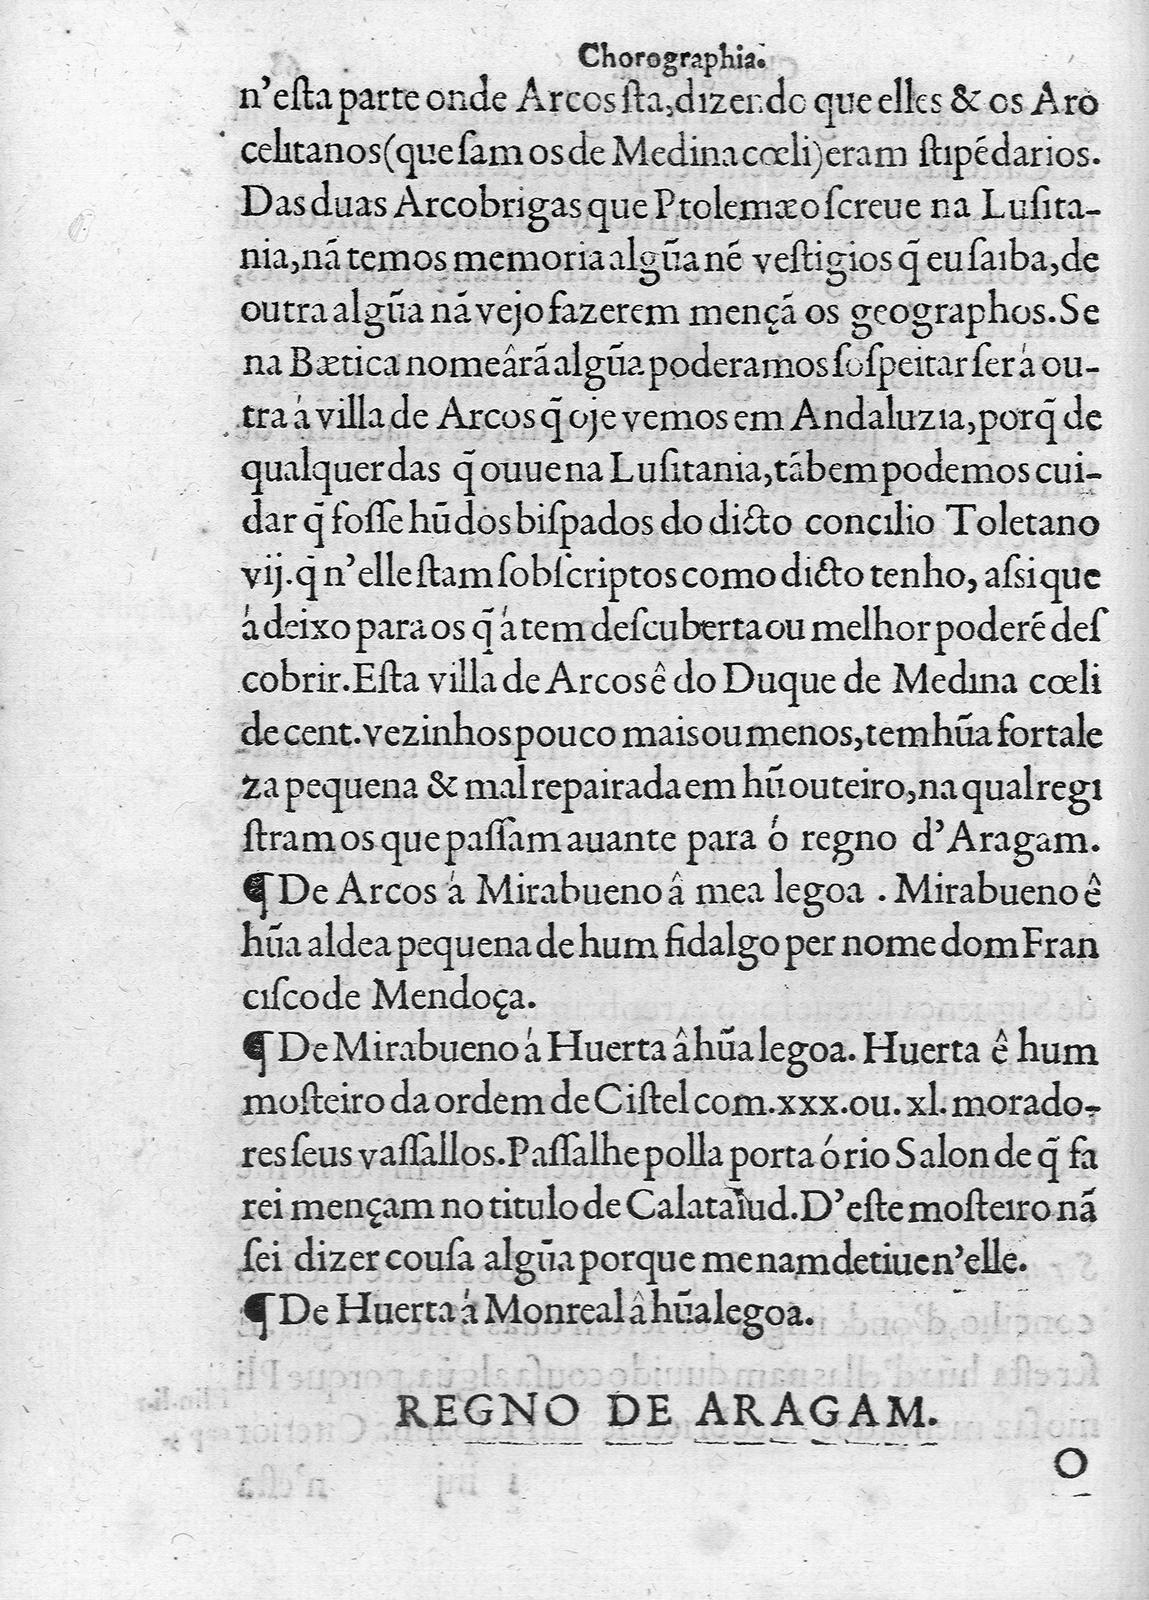 Chorographia.
n'eſta parte onde Arcos ſta, dizendo que elles & os Aro
celitanos (que ſam os de Medina cœli) eram ſtipẽdarios.
Das duas Arcobrigas que Ptolemæo ſcreue na Luſita-
nia, nã temos memoria algũa nẽ veſtigios q̃ eu ſaiba, de
outra algũa nã vejo fazerem mençã os geographos. Se
na Bætica nomeârã algũa poderamos ſoſpeitar ſer á ou-
tra á villa de Arcos q̃ oje vemos em Andaluzia, porq̃ de
qualquer das q̃ ouue na Luſitania, tãbem podemos cui-
dar q̃ foſſe hũ dos biſpados do dicto concilio Toletano
vij. q̃ n'elle ſtam ſobſcriptos como dicto tenho, aſsi que
á deixo para os q̃ á tem deſcuberta ou melhor poderẽ deſ
cobrir. Eſta villa de Arcos ê do Duque de Medina cœli
de cent. vezinhos pouco mais ou menos, tem hũa fortale
za pequena & mal repairada em hũ outeiro, na qual regi
ſtram os que paſſam auante para ó regno d'Aragam.
¶ De Arcos á Mirabueno â mea legoa . Mirabueno ê
hũa aldea pequena de hum fidalgo per nome dom Fran
ciſco de Mendoça.
¶ De Mirabueno á Huerta â hũa legoa. Huerta ê hum
moſteiro da ordem de Ciſtel com .xxx. ou. xl. morado-
res ſeus vaſſallos. Paſſalhe polla porta ó rio Salon de q̃ fa
rei mençam no titulo de Calataiud. D'eſte moſteiro nã
ſei dizer couſa algũa porque me nam detiue n'elle.
¶ De Huerta á Monreal â hũa legoa.
REGNO DE ARAGAM.
O